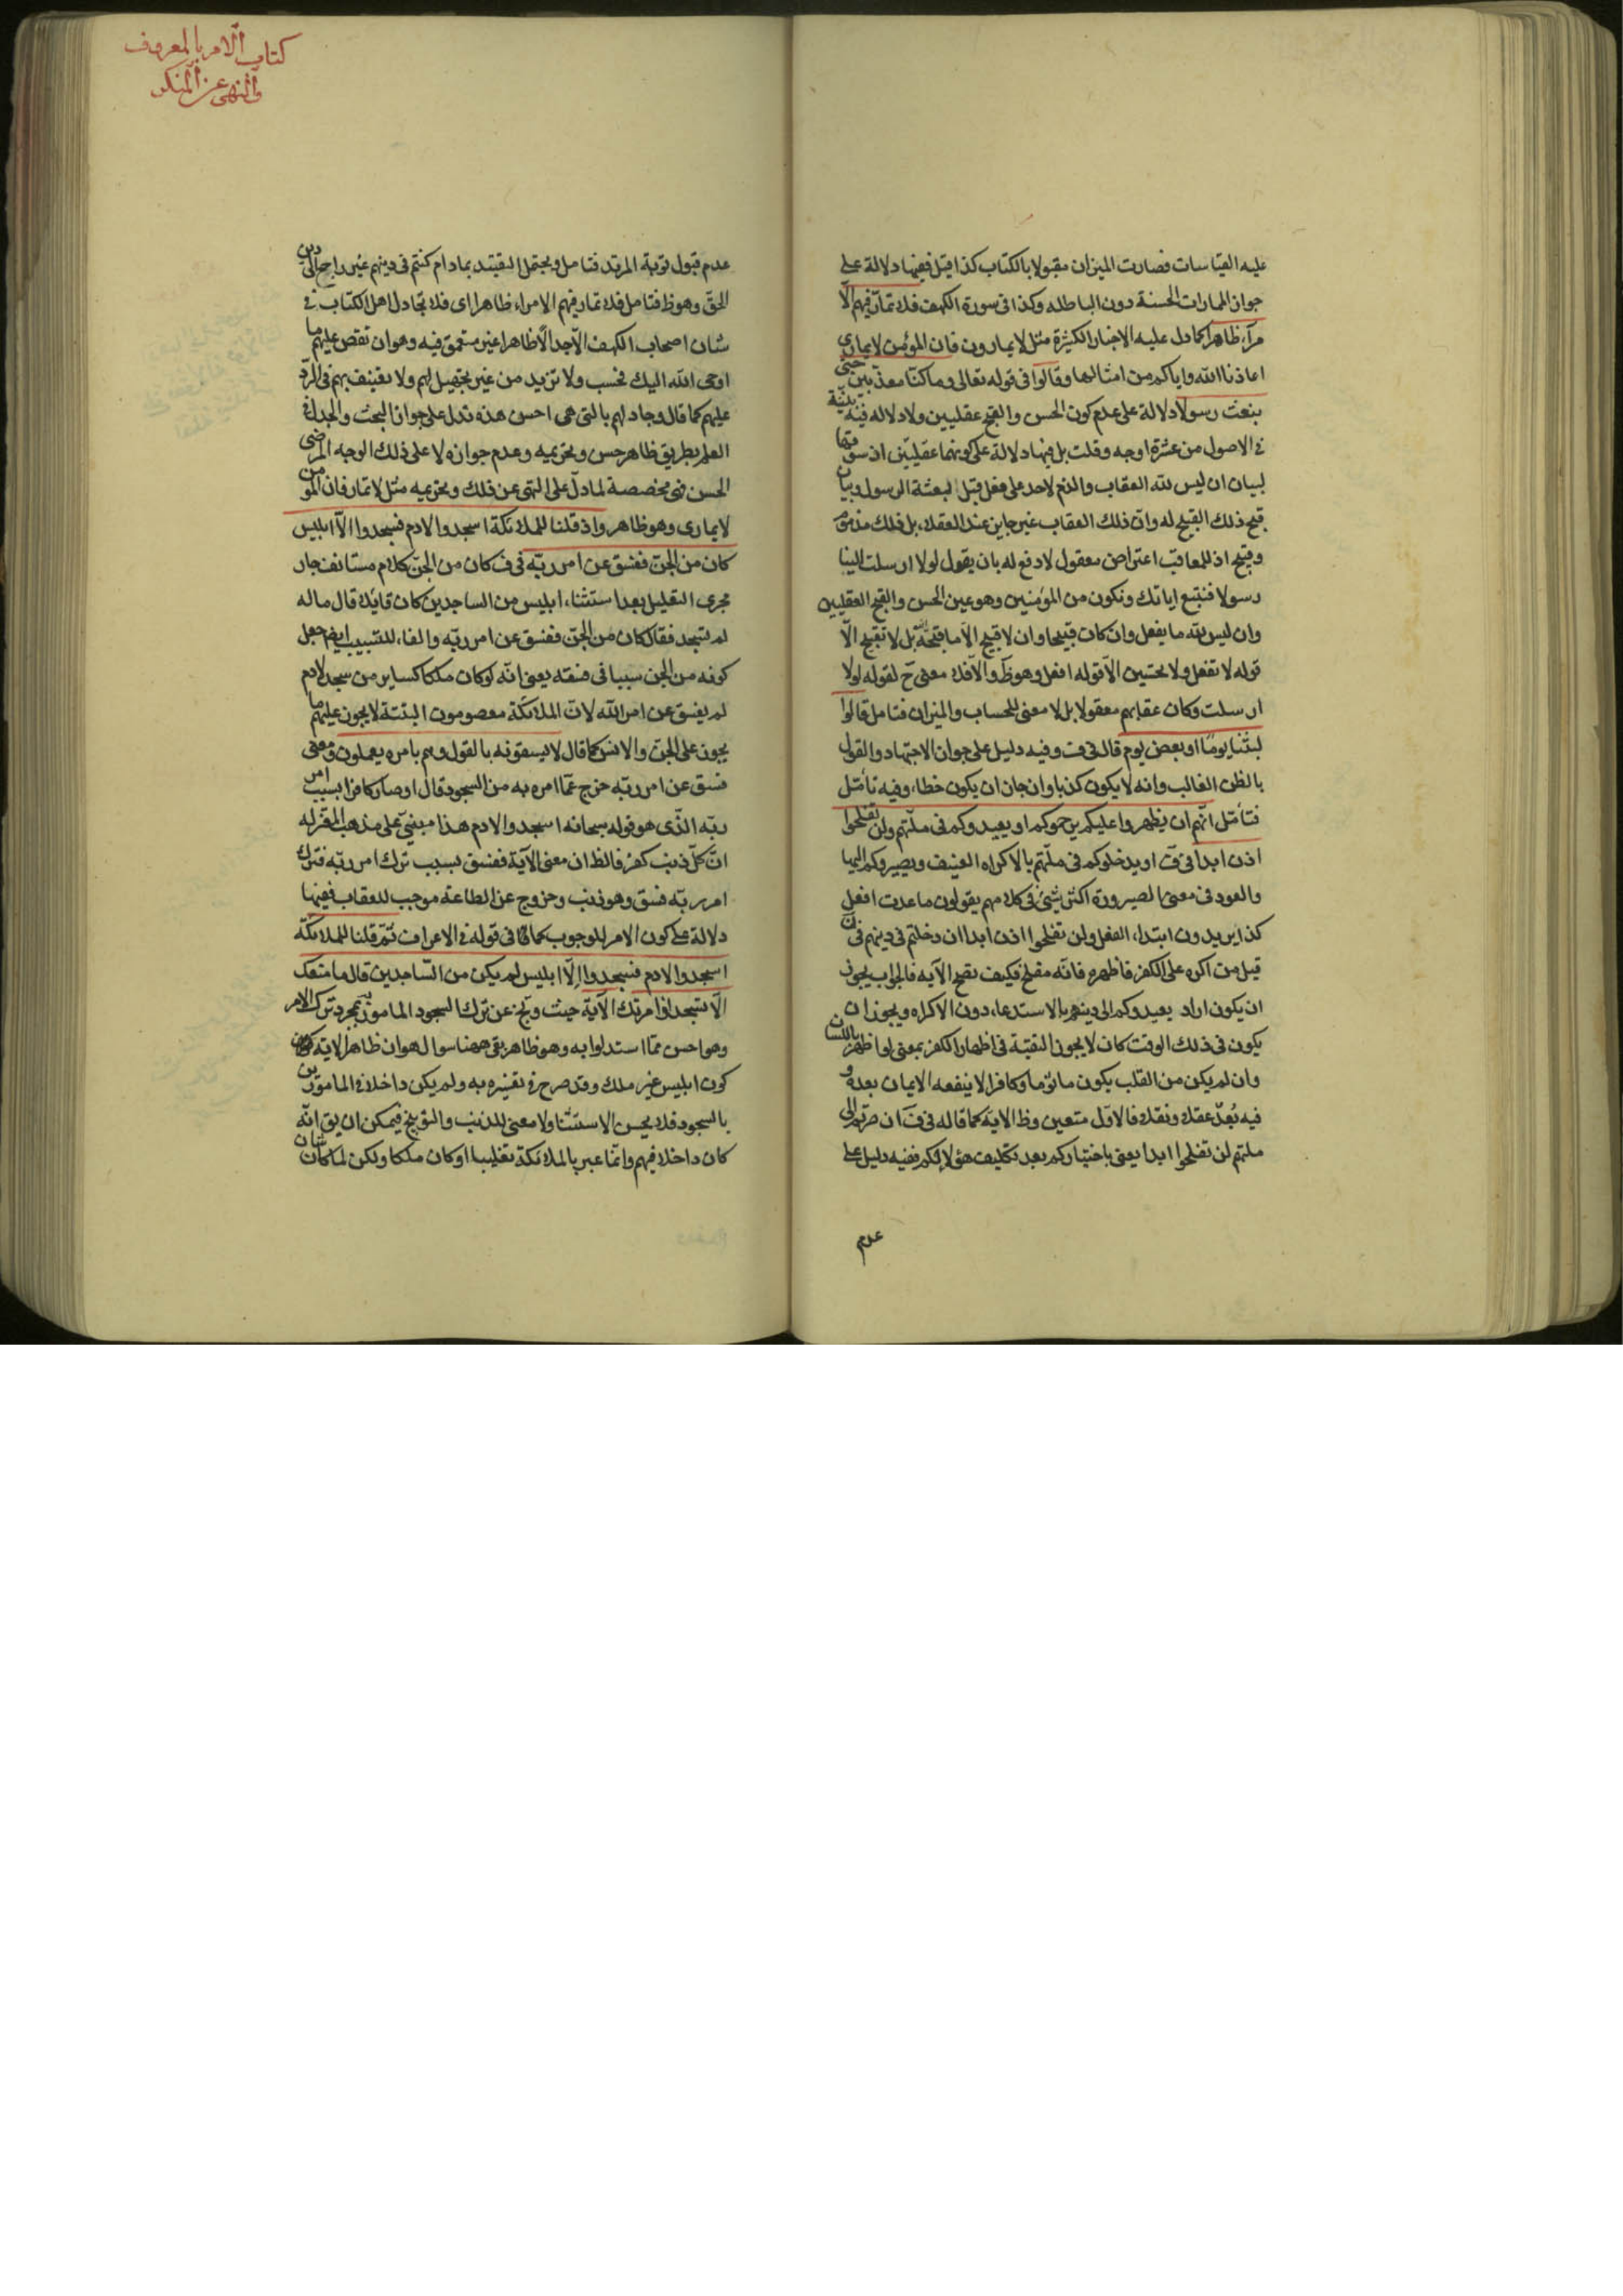 عليه القياسات فصارت الميزان مقبولا بالكتاب كذا قيل ففيها دلالة على
جواز المارات الحسنة دون الباطلة وكذا فى سورة الكهف فلا تمار فيهم الّا
مرآء ظاهرا كما دل عليه الاخبار الكثيرة مثل لا يمارون فان المؤمن لا يمارى
اعاذنا الله واياكم من امثالها وقالوا فى قوله تعالى وما كنّا معذّبين حتى
نبعث رسولا دلالة على عدم كون الحسن والقبح عقليين ولا دلالة فيه بيّنة
فى الاصول من عشرة اوجه وقلت بل فيها دلالة على كونهما عقليّين اذ سوقها
لبيان ان ليس لله العقاب والذم لاحد على فعل قبل لبعثة الرسول وبيان
قبح ذلك القبيح له وانّ ذلك العقاب غير جايز عند العقلاء بل ذلك مذموم
وقبيح اذ للمعاقب اعتراض معقول لا دفع له بان يقول لولا ارسلت الينا
رسولا فنتبع اياتك ونكون من المؤمنين وهو عين الحسن والقبح العقليين
وان ليس لله ما يفعل وان كان قبيحا وان لا قبيح الّا ما قبحه الله بل لا تقبيح الّا
قوله لا تفعل ولا تحسين الّا قوله افعل وهو ظ والّا فلا معنى ح لقوله لولا
ارسلت وكان عقابهم معقولا بل لا معنى للحساب والميزان فتامل قالوا
لبثنا يومًا او بعض يوم قال فى ف وفيه دليل على جواز الاجتهاد والقول
بالظن الغالب وانه لا يكون كذبا وان جاز ان يكون خطاء وفيه تأمّل
فتأمّل انّهم ان يظهروا عليكم يرجموكم او يعيدوكم فى ملّتهم ولن تفلحوا
اذن ابدا فى ف او يدخلوكم فى ملّتهم بالاكراه العنيف ويصيروكم اليها
والعود فى معنى الصيرورة اكثر شئ فى كلامهم يقولون ما عدت افعل
كذا يريدون ابتداء الفعل ولن تفلحوا اذن ابدا ان دخلتم فى دينهم فى ن
قيل من اكره على الكفر فاظهره فانّه مفلح فكيف تصح الآيه فالجواب يجوز
ان يكون اراد يعيدوكم الى دينهم بالاستدعاء دون الاكراه ويجوز ان
يكون فى ذلك الوقت كان لا يجوز التقيّة فى اظهار الكفر بمعنى لو اظهر باللسان
وان لم يكن من القلب يكون ماثوما وكافرا لا ينفعه الايمان بعده و
فيه بُعدٌ عقلا ونقلا فالاول متعين وظ الاية كما قاله فى ف ان صرتم الى
ملتهم لن تفلحوا ابدا يعنى باختياركم بعد تكليف هؤلاء لكم ففيه دليل على
عدم
كتاب الامر بالمعروف
والنهى عن المنكر
عدم قبول توبة المرتد فتامل ويحتمل التقييد بمادام كنتم فى دينهم غير راجع الى دين
الحقّ وهو ظ فتامل فلا تمار فيهم الا مراء ظاهرا اى فلا تجادل اهل الكتاب فى
شان اصحاب الكهف الّا جدالًا ظاهرا غير متعمق فيه وهو ان تقص عليهم ما
اوحى الله اليك فحسب ولا تزيد من غير تجهيل لهم ولا تعنيف بهم فى الردّ
عليهم كما قال وجادلهم بالتى هى احسن هذه تدل على جواز البحث والجدل فى
العلم بطريق ظاهر حسن وتحريمه وعدم جوازه لا على ذلك الوجه المرضى
الحسن فهى مخصصة لما دلّ على النهى عن ذلك وتحريمه مثل لا تمار فان المؤمن
لا يمارى وهو ظاهر واذ قلنا للملائكة اسجدوا لادم فسجدوا الّا ابليس
كان من الجنّ ففسق عن امر ربّه فى ف كان من الجنّ كلام مستانف جار
مجرى التعليل بعد استثناء ابليس من الساجدين كان قايلا قال ما له
لم يسجد فقال كان من الجنّ ففسق عن امر ربّه والفاء للتسبيب ايضا جعل
كونه من الجن سببا فى فسقه يعنى انّه لو كان ملكا كساير من سجد لادم
لم يفسق عن امر الله لانّ الملائكة معصومون البتّة لا يجوز عليهم ما
يجوز على الجنّ والانس كما قال لا يسبقونه بالقول وهم بامره يعملون ومعنى
فسق عن امر ربّه خرج عمّا امره به من السجود قال او صار كافرا بسبب امر
ربّه الّذى هو قوله سبحانه اسجدوا لادم هذا مبنىّ على مذهب المعتزله
انّ كلّ ذنب كفر فالظ ان معنى الآية ففسق بسبب ترك امر ربّه فترك
امر ربّه فسق وهو ذنب وخروج عن الطاعة موجب للعقاب ففيها
دلالة على كون الامر للوجوب كما فى قوله فى الاعراف ثمّ قلنا للملائكة
اسجدوا لادم فسجدوا الّا ابليس لم يكن من السّاجدين قال ما منعك
الّا تسجد اذ امرتك الآية حيث وبّخ عن ترك السجود المامور به بمجرد ترك الامر
وهو احسن ممّا استدلوا به وهو ظاهر بقى ههنا سوال هو ان ظاهر الاية
كون ابليس غير ملك وقد صرح فى تفسيره به ولم يكن داخلا فى المامورين
بالسجود فلا يحسن الاستثنا ولا معنى للذنب والتوبيخ فيمكن ان يق انّه
كان داخلا فيهم وانّما عبر بالملائكة تغليبا او كان ملكا ولكن لما كان شان